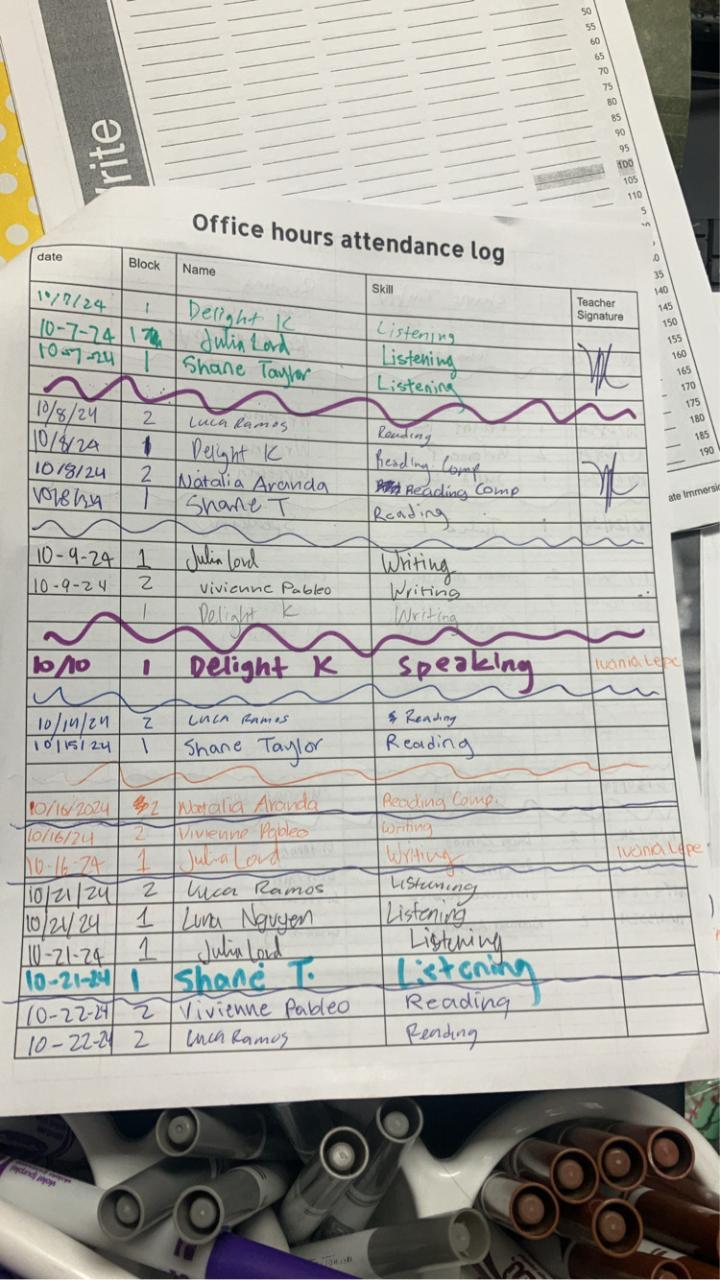 rite
50
55
60
65
70
75
80
85
90
95
100
105
110
35
140
145
150
155
160
165
170
175
180
185
190
ate Immersi
Office hours attendance log
date Block Name Skill Teacher Signature
10/7/24 1 Delight K Listening
10-7-24 1 Julia Lord Listening
10-7-24 1 Shane Taylor Listening
10/8/24 2 Luca Ramos Reading
10/8/24 1 Delight K Reading Comp
10/8/24 2 Natalia Aranda Reading Comp
10/8/24 1 Shane T Reading
10-9-24 1 Julia Lord Writing
10-9-24 2 Vivienne Pableo Writing
1 Delight K Writing
10/10 1 Delight K Speaking Ivania Lepe
10/14/24 2 Luca Ramos Reading
10/15/24 1 Shane Taylor Reading
10/16/2024 2 Natalia Aranda Reading Comp.
10/16/24 2 Vivienne Pableo Writing
10-16-24 1 Julia Lord Writing Ivania Lepe
10/21/24 2 Luca Ramos Listening
10/21/24 1 Luna Nguyen Listening
10-21-24 1 Julia Lord Listening
10-21-24 1 Shane T. Listening
10-22-24 2 Vivienne Pableo Reading
10-22-24 2 Luca Ramos Reading